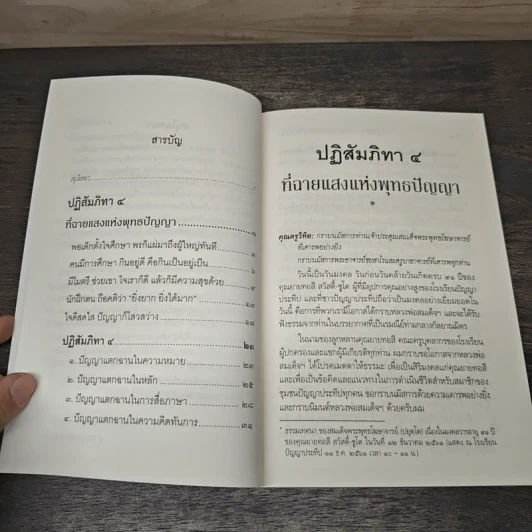 สารบัญ
ปฏิสัมภิทา ๔
ที่ฉายแสงแห่งพุทธปัญญา
พอเด็กตั้งใจศึกษา พรก็แผ่มาถึงผู้ใหญ่ทันที
คนมีการศึกษา กินอยู่ดี คือกินเป็นอยู่เป็น
มีไมตรี ช่วยเขา ใจเราก็ดี แล้วก็มีความสุขด้วย
นักฝึกตน ถือคติว่า "ยิ่งยาก ยิ่งได้มาก"
ใจดีสดใส ปัญญาก็ไสวสว่าง
ปฏิสัมภิทา ๔ ๒๓
๑. ปัญญาแตกฉานในความหมาย ๒๓
๒. ปัญญาแตกฉานในหลัก ๒๕
๓. ปัญญาแตกฉานในการสื่อภาษา ๒๘
๔. ปัญญาแตกฉานในความคิดทันการ ๓๑
ปฏิสัมภิทา ๔
ที่ฉายแสงแห่งพุทธปัญญา
*
คุณครูวิทิต: กราบนมัสการท่านเจ้าประคุณสมเด็จพระพุทธโฆษาจารย์
ที่เคารพอย่างยิ่ง
วันนี้เป็นวันมงคล วันก่อนวันคล้ายวันเกิดครบ ๙๑ ปีของ
คุณยายทอสี สวัสดิ์-ชูโต ผู้ที่มีอุปการคุณอย่างสูงของโรงเรียนปัญญา
ประทีป และที่ชาวปัญญาประทีปถือว่าเป็นมงคลอย่างเยี่ยมยอดใน
วันนี้ คือการที่พวกเรามีโอกาสได้กราบหลวงพ่อสมเด็จฯ และจะได้รับ
ฟังธรรมจากท่านในบรรยากาศที่เป็นรมณีย์ท่ามกลางกัลยาณมิตร
ในนามของลูกหลานคุณยายทอสี คณะครูบุคลากรของโรงเรียน
ผู้ปกครองและแขกผู้มีเกียรติทุกท่าน ผมกราบขอโอกาสจากหลวงพ่อ
สมเด็จฯ ได้โปรดเมตตาให้ธรรมะ เพื่อเป็นสิริมงคลแก่คุณยายทอสี
และเพื่อเป็นข้อคิดและแนวทางในการดำเนินชีวิตสำหรับสมาชิกของ
ชุมชนปัญญาประทีปทุกคน ขอกราบนมัสการด้วยความเคารพอย่างยิ่ง
และกราบนิมนต์หลวงพ่อสมเด็จฯ ด้วยครับผม
* ธรรมเทศนา ของสมเด็จพระพุทธโฆษาจารย์ (ปยุตฺโต) เนื่องในมงคลวารอายุ ๙๑ ปี
ของคุณยายทอสี สวัสดิ์-ชูโต ในวันที่ ๑๒ ธันวาคม ๒๕๖๑ (แสดง ณ โรงเรียน
ปัญญาประทีป ๑๑ ธ.ค. ๒๕๖๑ เวลา ๑๐ – ๑๑ น.)